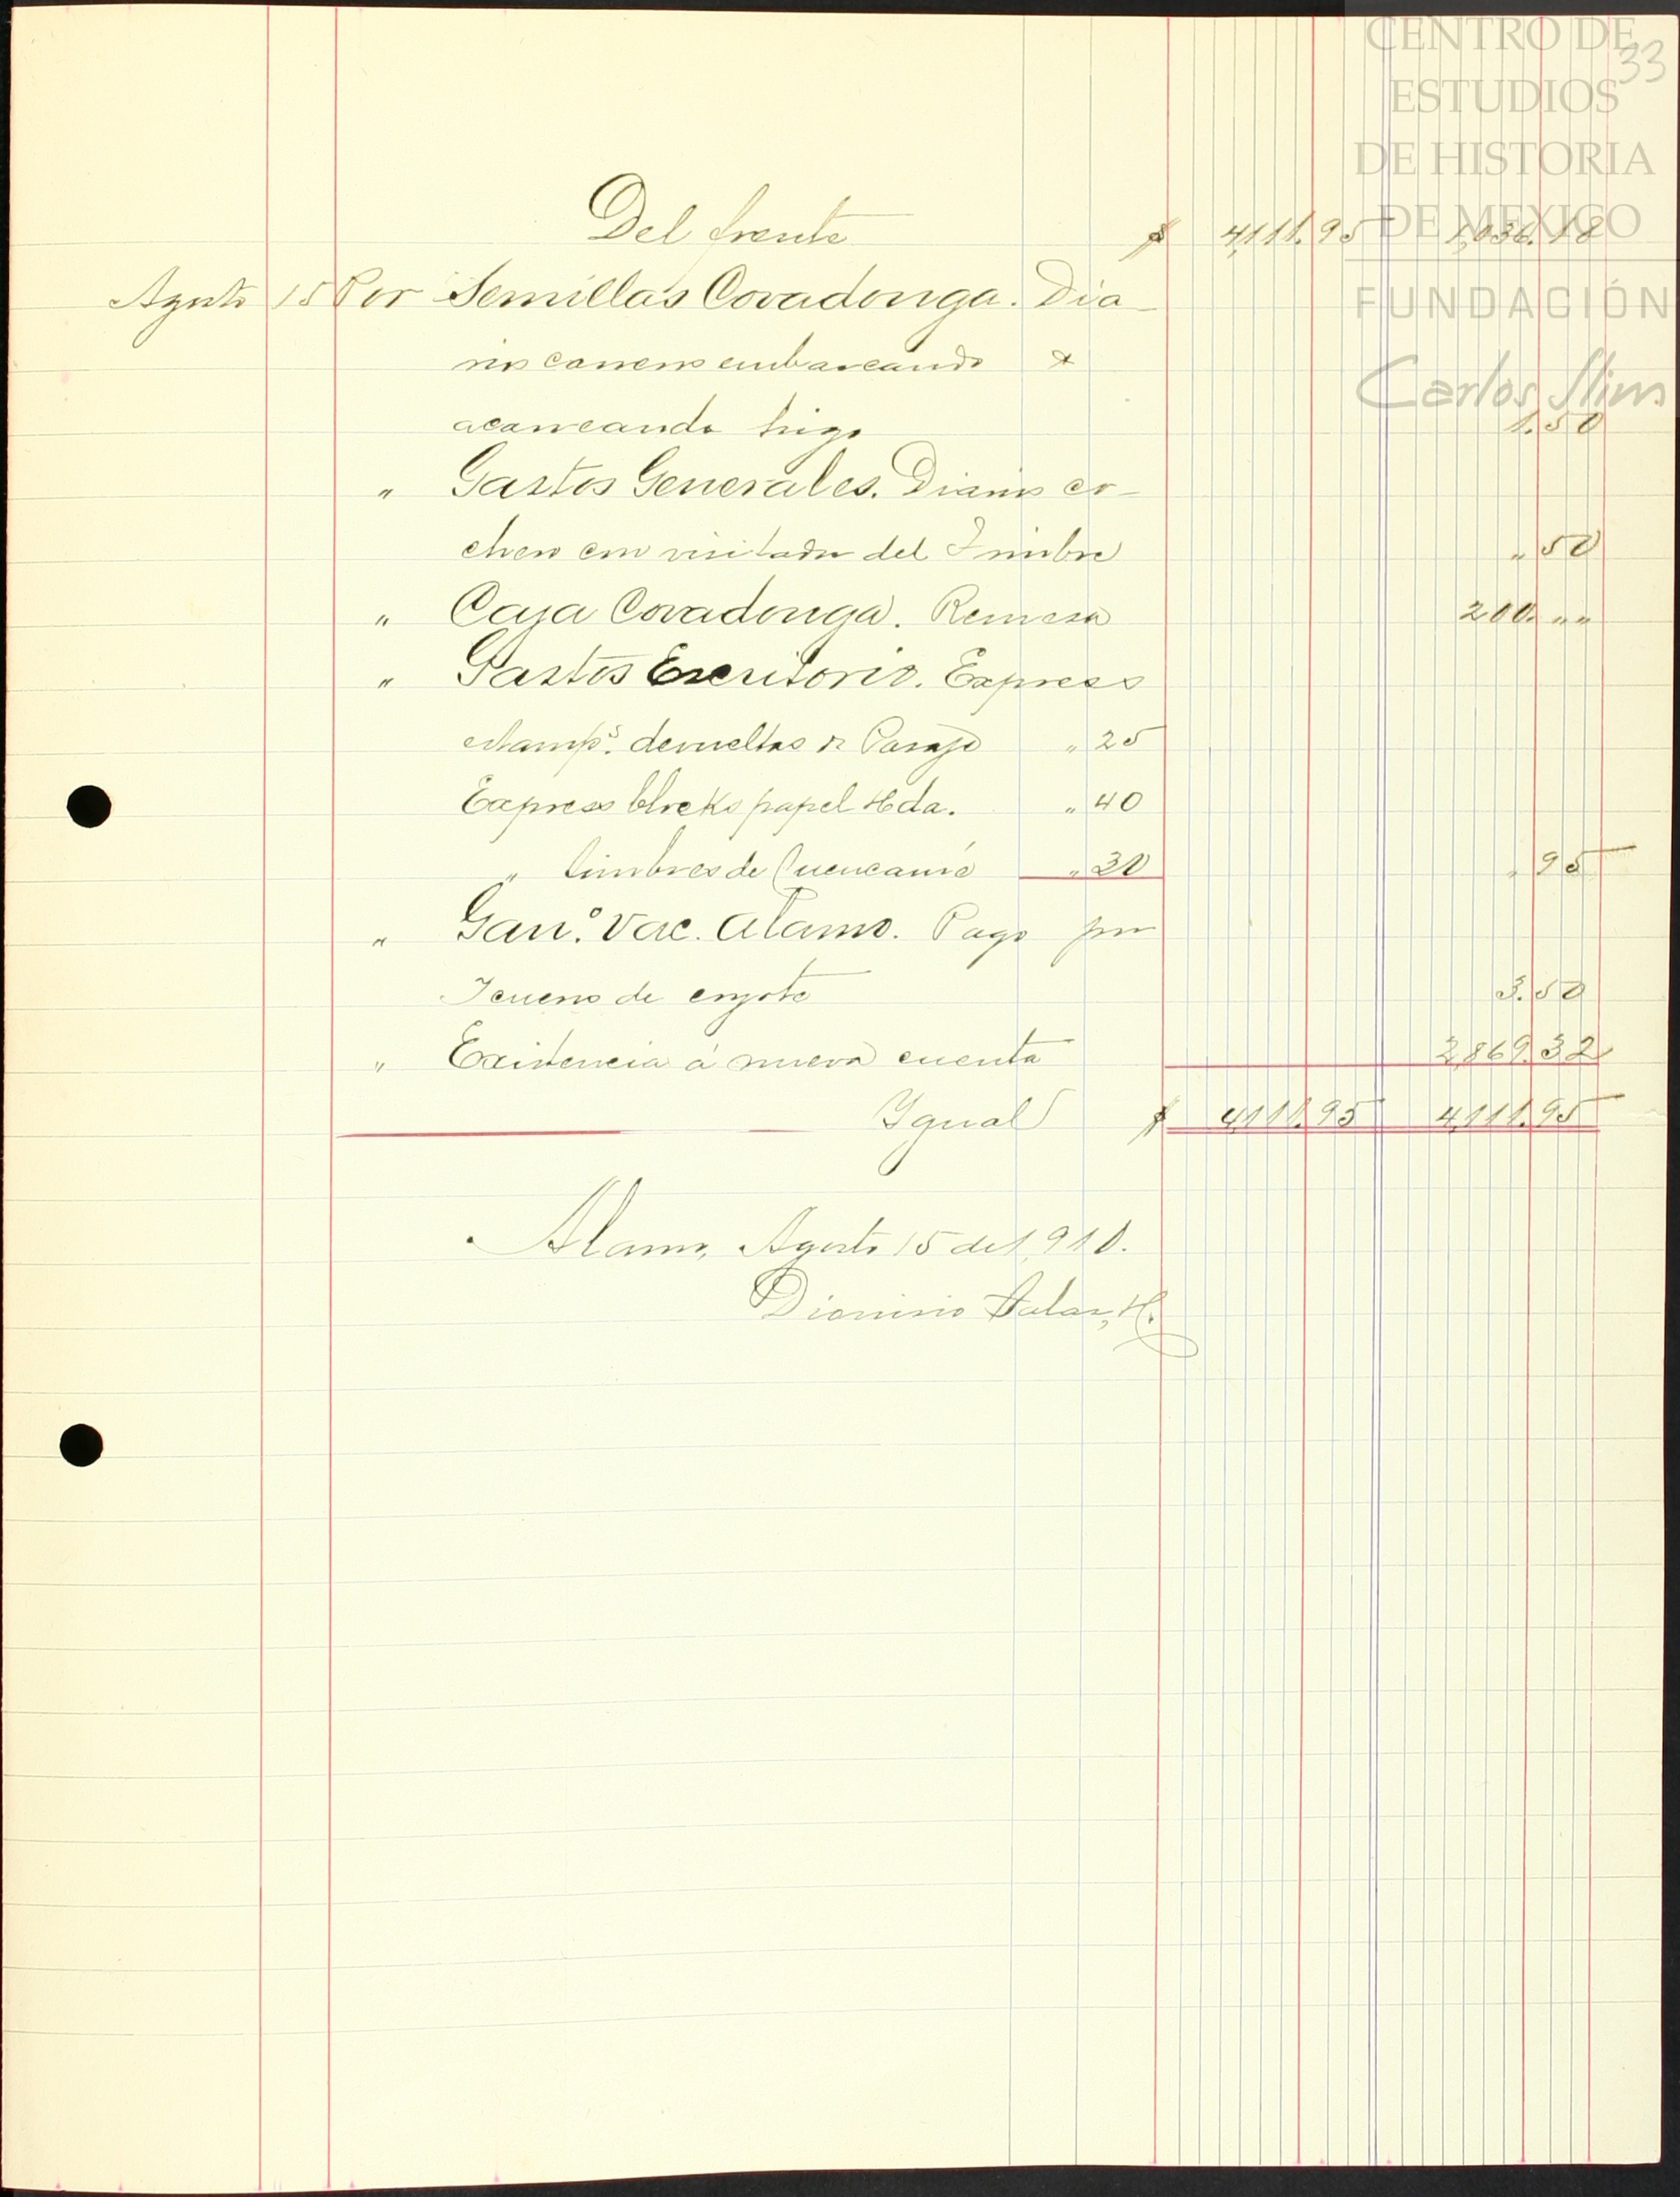 CENTRO DE
ESTUDIOS
DE HISTORIA
DE MEXICO
FUNDACIÓN
Carlos Slim
33
Del frente $ 4,111.95 1,036.18
Agosto 15 Por Semillas Covadonga. Dia-
rios carreros embarcando &
acarreando trigo 1.50
" Gastos Generales. Diarios co-
chero con visitador del Timbre " 50
" Caja Covadonga. Remesa 200. " "
" Gastos Escritorio. Express
estamps. devueltas á Pasaje " 25
Express blocks papel Hda. " 40
" timbres de Cuencamé " 30 " 95
" Gano. Vac. Alamo. Pago por
de coyote 3.50
" Existencia á nueva cuenta 2,869.32
Ygual $ 4,111.95 4,111.95
Alamo, Agosto 15 de 1,910.
Dionisio Salas, H.